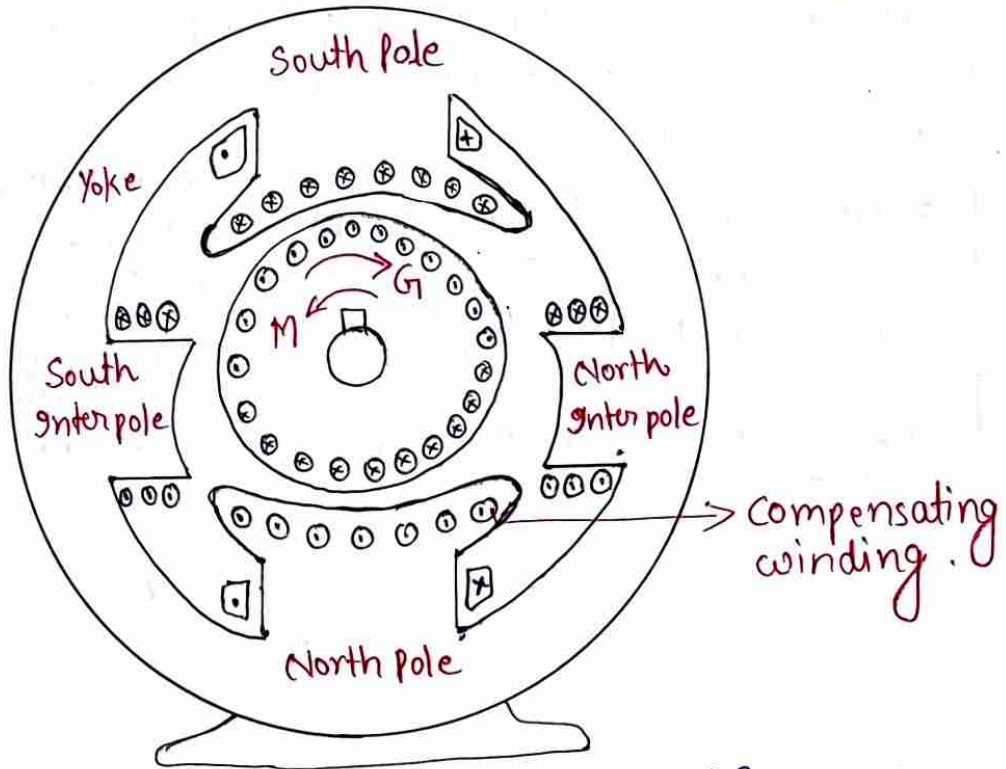 South Pole
Yoke
G
M
South
Interpole
North
Interpole
Compensating
winding.
North Pole